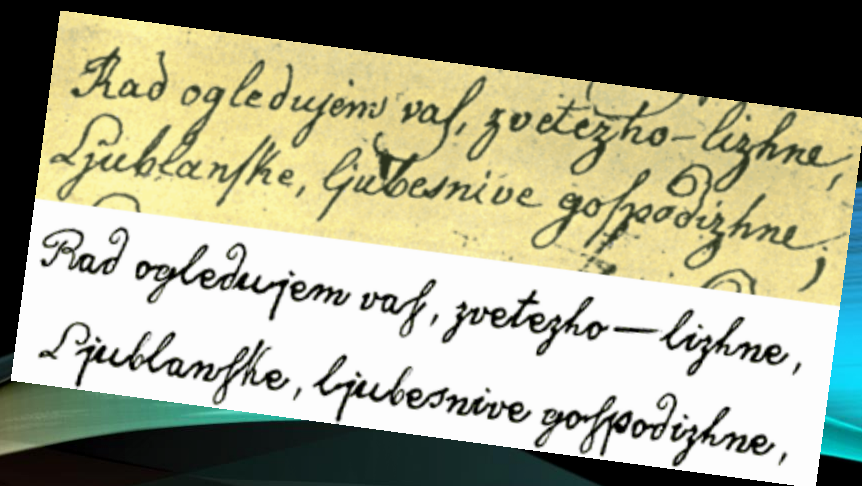 Rad ogledujem vaſ, zvetezho-lizhne,
Ljublanſke, ljubesnive goſpodizhne,
Rad ogledujem vaſ, zvetezho—lizhne,
Ljublanſke, ljubesnive goſpodizhne,